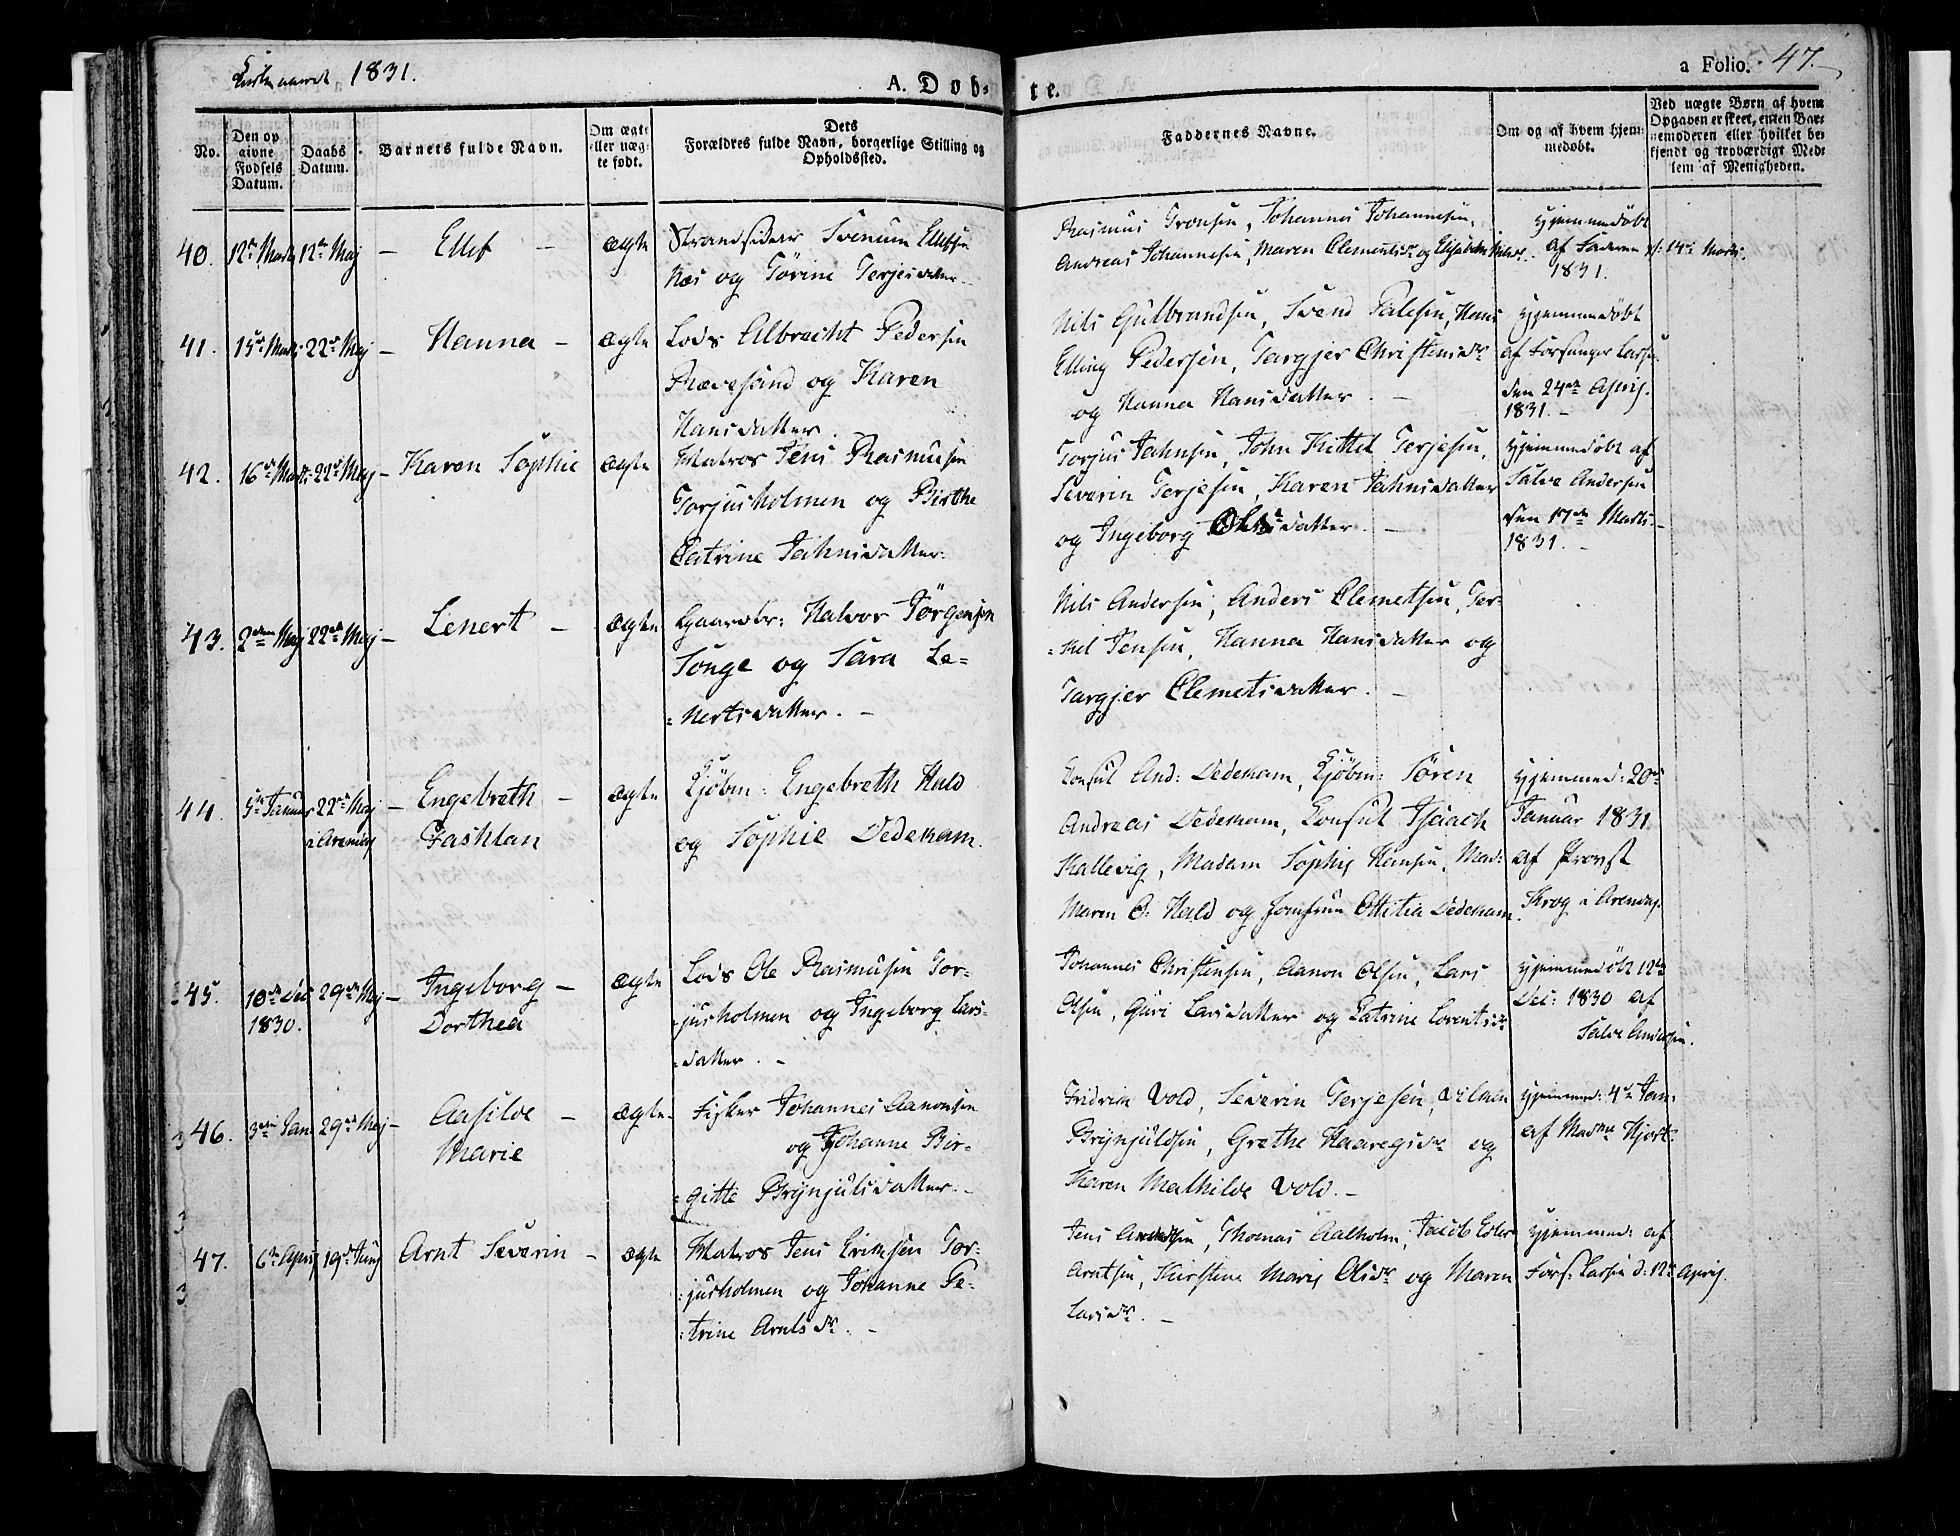 Kirkeaaret 1831.
A. Døb-
te.
a Folio. 47.
No.
Den opgivne Fødsels Datum.
Daabs Datum.
Barnets fulde Navn.
Om ægte eller uægte født.
Dets Forældres fulde Navn, borgerlige Stilling og Opholdssted.
Faddernes Navne.
Om og af hvem hjemmedøbt.
Ved uægte Børn af hvem Opgaven er skeet, enten Barnemoderen eller hvilket bekjendt og troværdigt Medlem af Menigheden.
40. 12te Marts 12te Maj – Ellef – ægte
Strandsidder Svenum Ellefsen
Næs og Tørine Terjesdatter
Rasmus Tronsen, Johannes Johannesen,
Andreas Johannesen, Maren Clementsdr og Elisabeth
Hjemmedøbt
af Faderen d: 14de Marts.
1831.
41. 15de Marts 22de Maj – Hanna – ægte
Lods Albracht Pedersen
Rævesand og Karen
Hansdatter.
Nils Gulbrandsen, Svend Palesen, Hans
Elling Pedersen, Targjer Christensdr
og Hanna Hansdatter. –
Hjemmedøbt
af Forsanger Larsen
den 24de April.
1831. –
42. 16de Marts 22de Maj – Karen Sophie ægte
Matros Jens Rasmusen
Torjusholmen og Birthe
Catrine Jahnsdatter.
Torjus Jahnsen, John Kittel Terjesen,
Severin Terjesen, Karen Jahnsdatter
og Ingeborg Olsdatter. –
Hjemmedøbt af
Salve Andersen
den 17de Marts.
1831. –
43. 2den Maj 22de Maj – Lenert – ægte
Gaardbr: Halvor Jörgensen
Songe og Sara Le=
=nertsdatter. –
Nils Andersen, Anders Clemetsen, Ter=
=kel Jensen, Hanna Hansdatter og
Targjer Clemetsdatter. –
44. 5te Januar 22de Maj – Engebreth – ægte
i Arendal Fashlan
Kjöbm: Engebreth Hald
og Sophie Dedekam.
Konsul And: Dedekam, Kjöbm: Sören
Andreas Dedekam, Konsul Isaach
Kallevig, Madam Sophie Hansen, Mad:
Maren O. Hald og Jomfrue Ottilia Dedekam.
Hjemmed: 20de
Januar 1831
af Provst
Krog i Arendal.
45. 10de Dec 29de Maj – Ingeborg – ægte
1830. Dorthea
Lods Ole Rasmusen Tor=
=jusholmen og Ingeborg Lars=
=datter. –
Johannes Christensen, Aanon Olsen, Lars
Olsen, Guri Larsdatter og Catrine Lorentsdr
Hjemmedöbt 12te
Dec: 1830 af
Salve Andersen.
46. 3die Jan: 29de Maj – Aasilde – ægte
Marie
Fisker Johannes Aanonsen
og Johanne Bir=
=gitte Brynjulsdatter. –
Fridrik Vold, Severin Terjesen, Vilken
Brynjuldsen, Grethe Haaregsdr og
Karen Mathilde Vold. –
Hjemmed: 4de Jan:
af Madme Hjort.
47. 6te April 19de Juny Arnt Severin – ægte
Matros Jens Eriksen Tor=
=jusholmen og Johanne Pe=
=trine Arntsdr. –
Jens Thomas Aalholm, Jacob Eder
Arntsen, Kirstene Marie Olsdr og Maren
Larsdr. –
Hjemmed: af
Fors: Larsen d: 12te April.